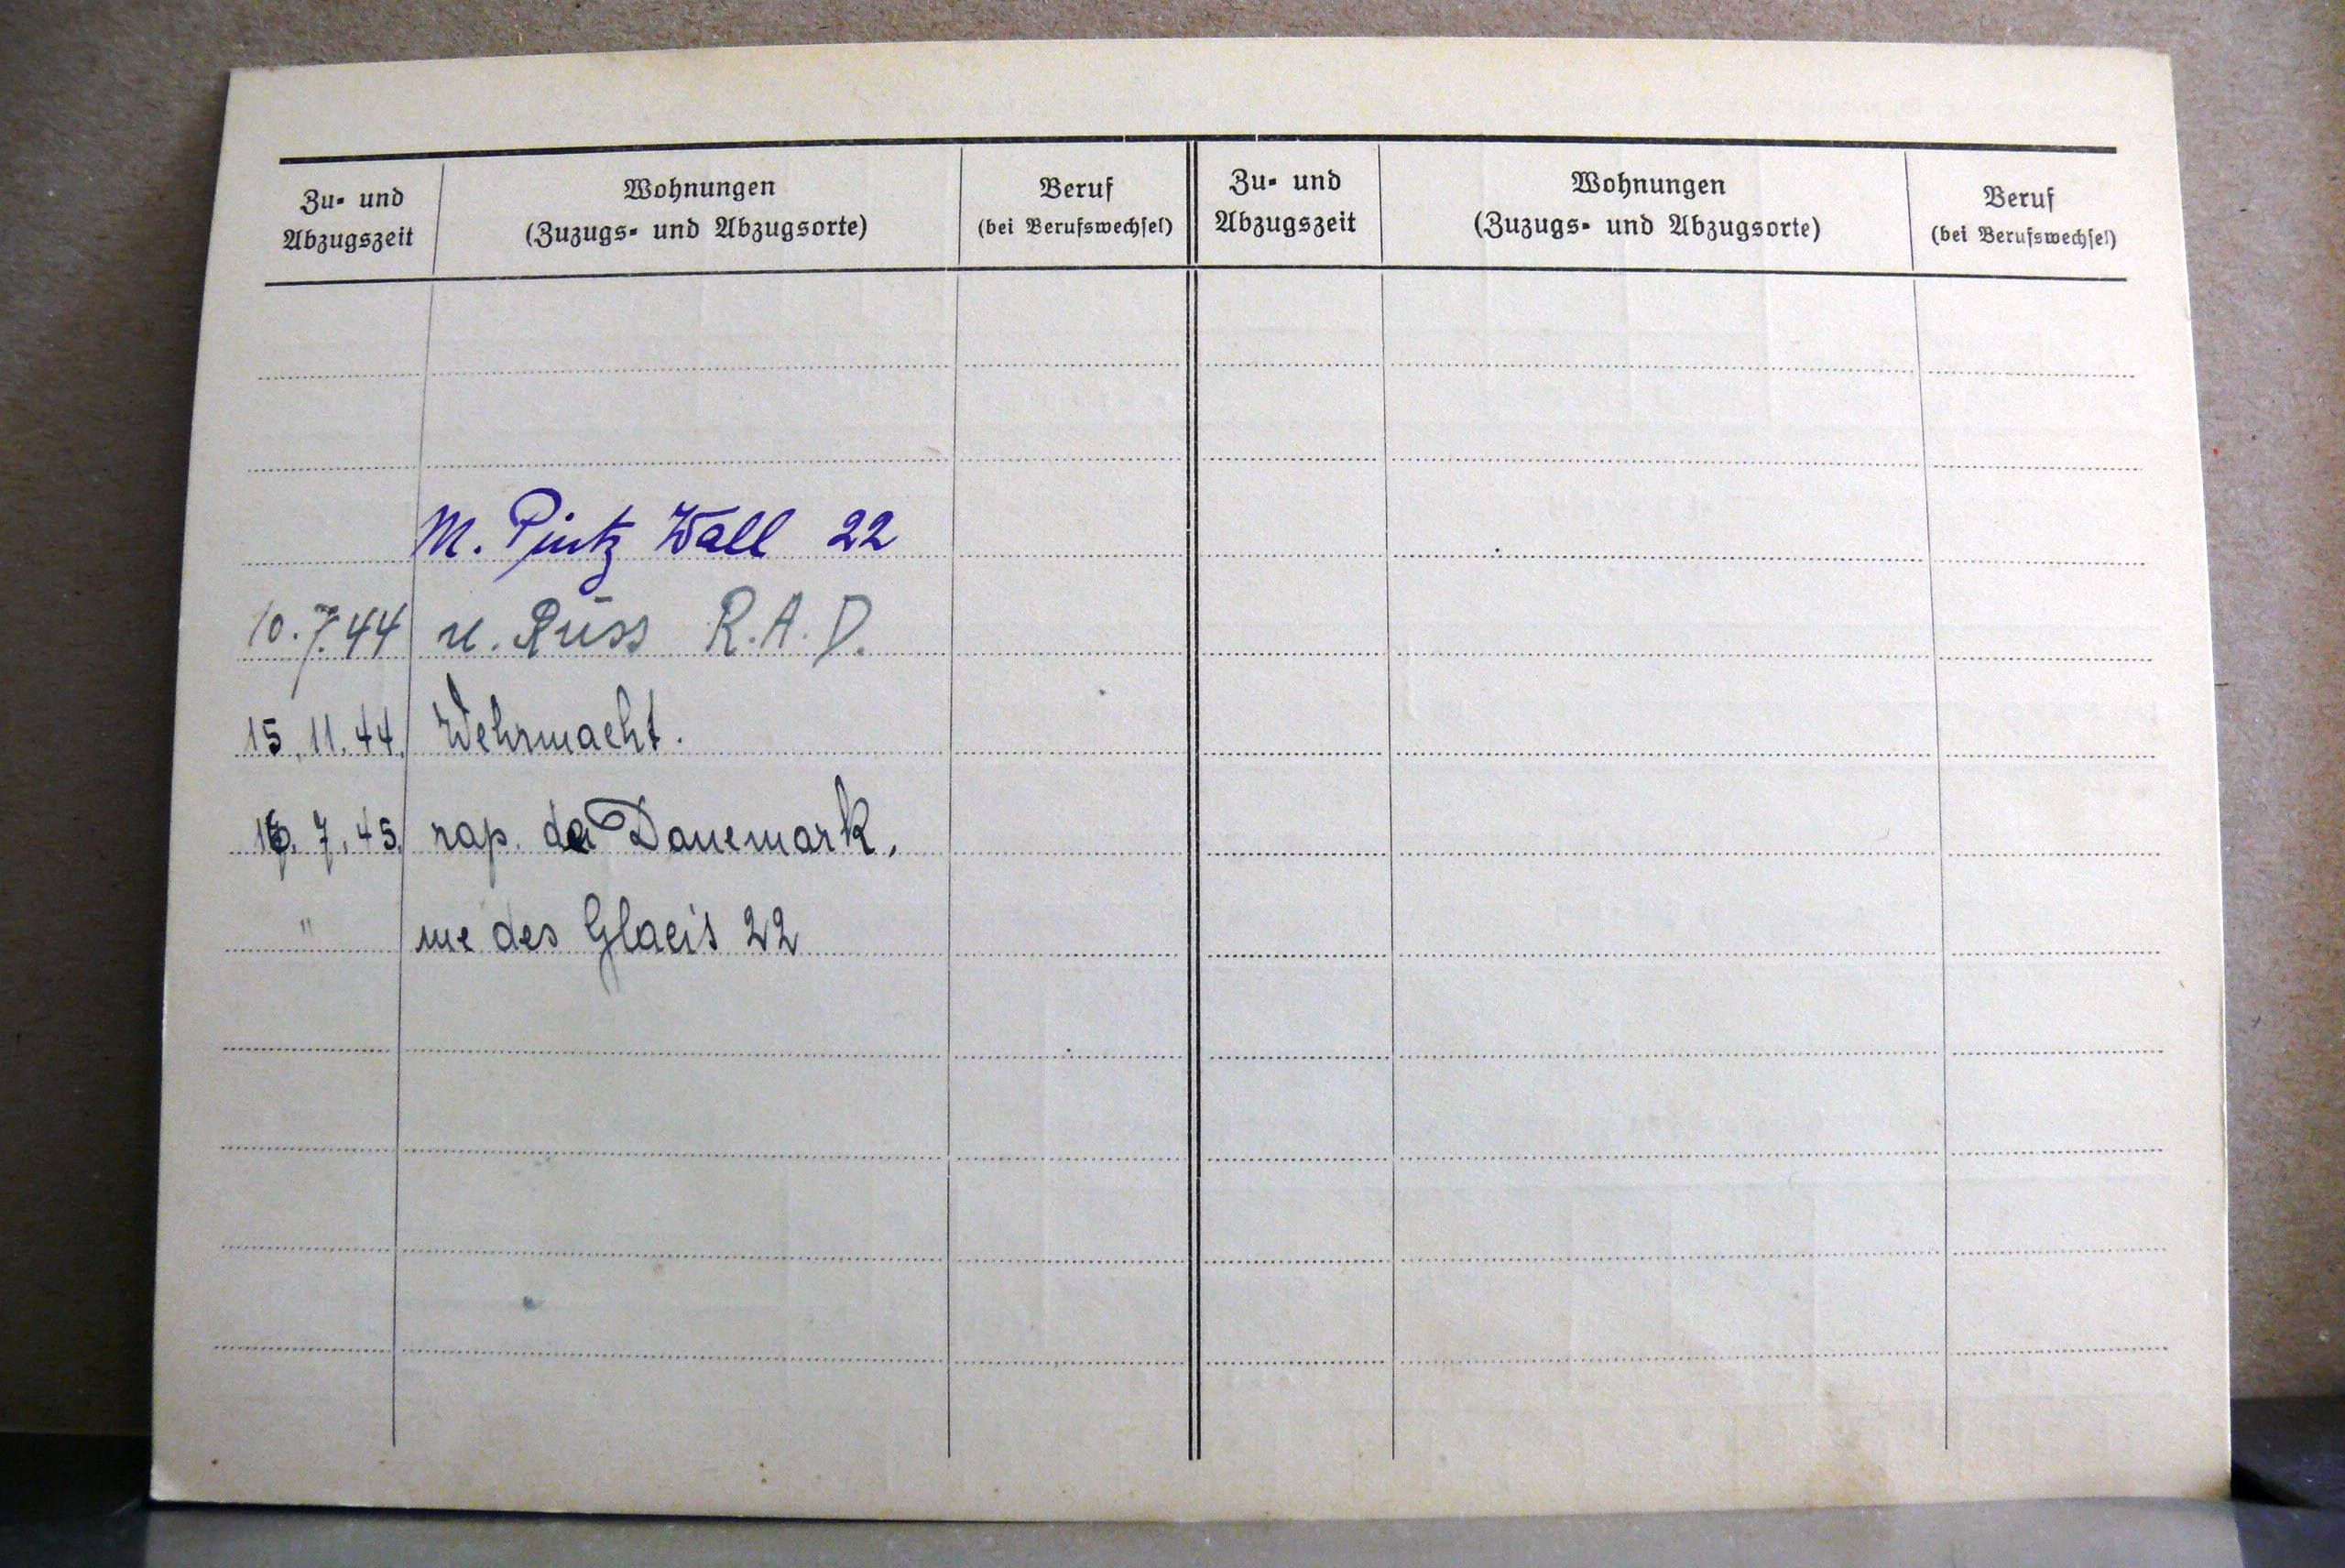 Zu- und Abzugszeit
Wohnungen
(Zuzugs- und Abzugsorte)
Beruf
(bei Berufswechsel)
Zu- und Abzugszeit
Wohnungen
(Zuzugs- und Abzugsorte)
Beruf
(bei Berufswechsel)
M. Wall 22
10.7.44 n. R.A.D.
15.11.44. Wehrmacht.
7.45. rap. Danemark.
" rue des Glacis 22